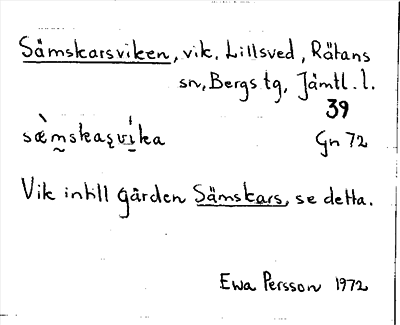 Sämskarsviken, vik, Lillsved, Rätans
sn, Bergs tg, Jämtl. l.
39
sæ̀m̰skaʂvḭ́ka Gn 72
Vik intill gården Sämskars, se detta.
Ewa Persson 1972